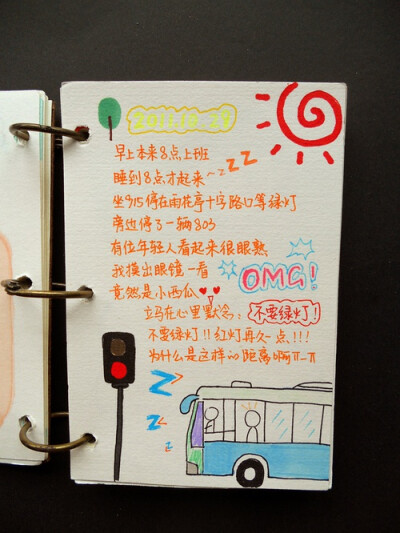 2011.10.29
早上本来8点上班
睡到8点才起来~zZZ
坐915停在雨花亭十字路口等绿灯
旁边停了一辆803
有位年轻人看起来很眼熟
我摸出眼镜一看 OMG!
竟然是小西瓜
立马在心里默念：不要绿灯！
不要绿灯!!红灯再久一点!!!
为什么是这样的距离啊π_π
Z
z
z